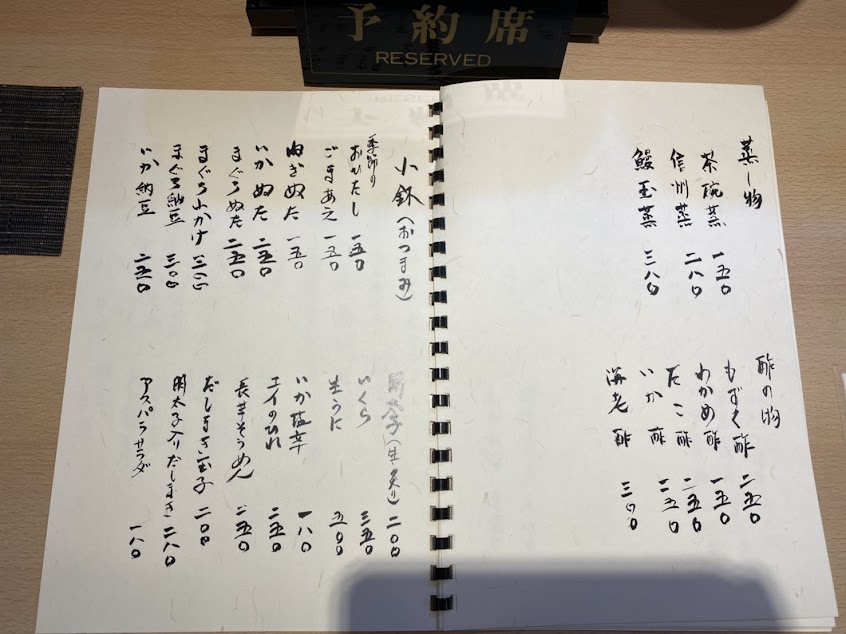 予約席
RESERVED
蒸し物
茶碗蒸 一五〇
信州蒸 二八〇
鰻玉蒸 三八〇
酢の物
もずく酢 二五〇
わかめ酢 一五〇
たこ酢 二五〇
いか酢 二五〇
海老酢 三〇〇
小鉢(おつまみ)
季節のおひたし 一五〇
ごまあえ 一五〇
ねぎぬた 一五〇
いかぬた 二五〇
まぐろぬた 二五〇
まぐろ山かけ 三〇〇
まぐろ納豆 三〇〇
いか納豆 二五〇
明太子(生・炙り) 二〇〇
いくら 三五〇
生うに 五〇〇
いか塩辛 一八〇
エイのひれ 二五〇
長芋そうめん 二五〇
だしまき玉子 二〇〇
明太子入りだしまき 二八〇
アスパラサラダ 一八〇